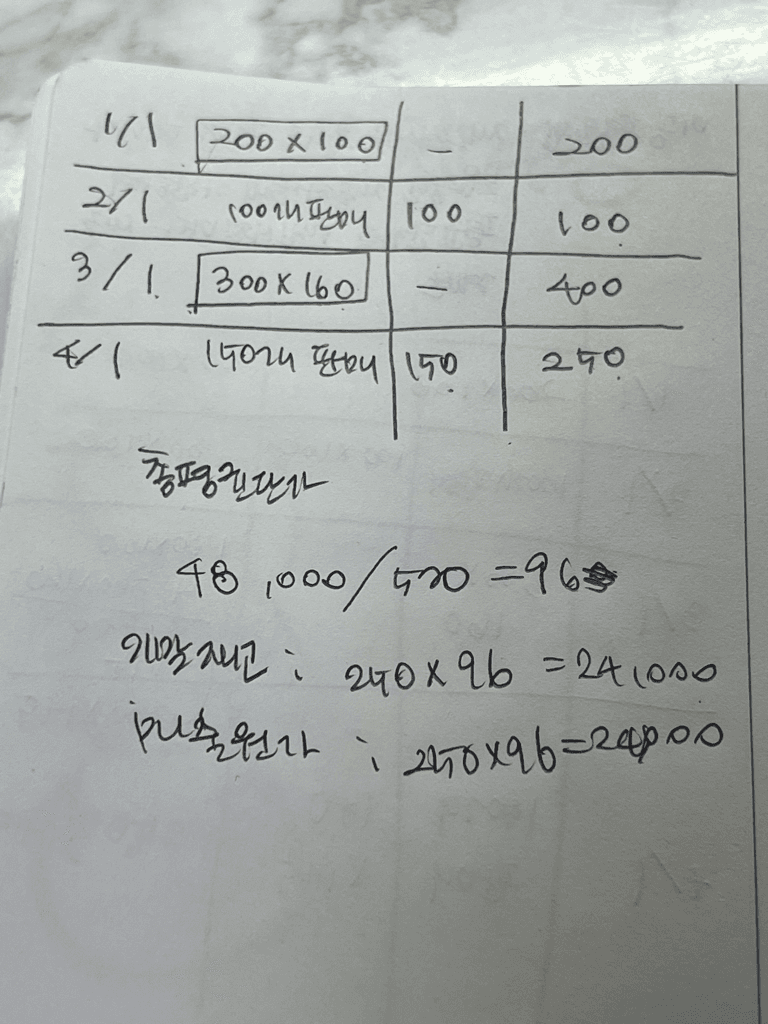 1/1 200 x 100 - 200
2/1 100개 판매 100 100
3/1 300 x 160 - 400
4/1 150개 판매 150 250
총평균단가
48,000/500 = 96
기말재고 : 250 x 96 = 24,000
매출원가 : 250 x 96 = 24,000